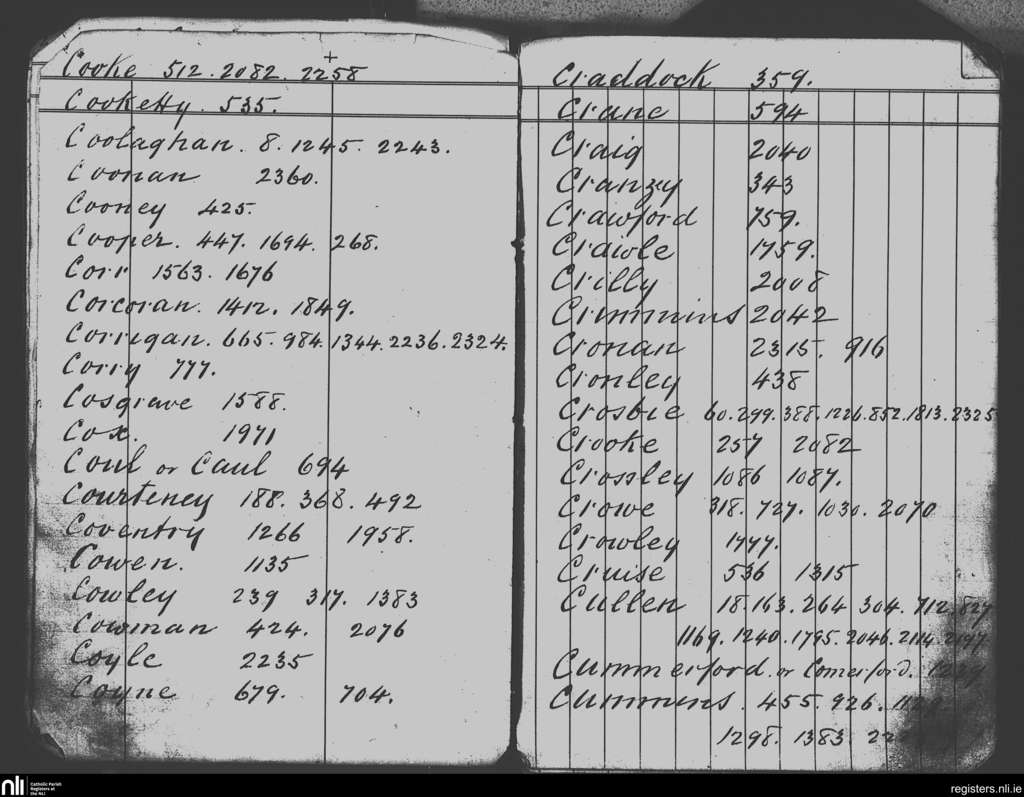 Cooke 512. 2082. 2258
Cooketty. 535.
Coolaghan. 8. 1245. 2243.
Coonan 2360.
Cooney 425.
Cooper. 447. 1694. 268.
Corr 1563. 1676
Corcoran. 1412. 1849.
Corrigan. 665. 984. 1344. 2236. 2324.
Corry 777.
Cosgrave 1588.
Cox. 1971
Coul or Caul 694
Courteney 188. 368. 492
Coventry 1266 1958.
Cowen. 1135
Cowley 239 317. 1383
Cowman 424. 2076
Coyle 2235
Coyne 679. 704.
Craddock 359.
Crane 594
Craig 2040
Cranzy 343
Crawford 759.
Crawle 1759.
Crilly 2008
Crimmins 2042
Cronan 2315. 916
Cronley 438
Crosbie 60. 299. 388. 1226. 852. 1813. 2325
Crooke 257 2082
Crossley 1086 1087.
Crowe 318. 727. 1030. 2070
Crowley 1777.
Cruise 536 1315
Cullen 18. 163. 264 304. 712. 827
1169. 1240. 1795. 2046. 2114. 2197
Cummerford. or Comerford.
Cummins. 455. 926.
1298. 1383.
nli Catholic Parish Registers at the NLI
registers.nli.ie